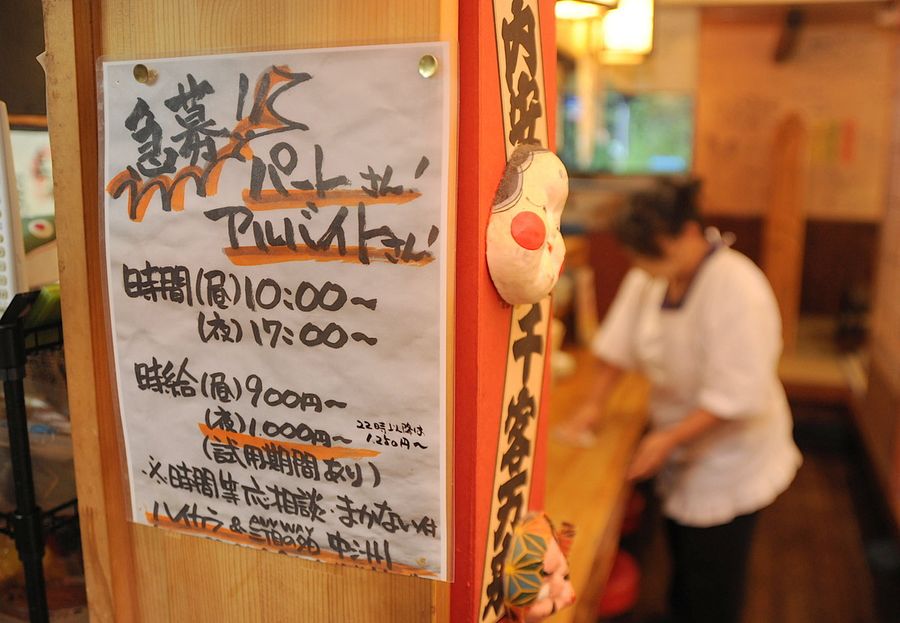 急募!!
パートさん!
アルバイトさん!
時間(昼)10:00~
(夜)17:00~
時給(昼)900円~
(夜)1.000円~
22時以降は
1.250円~
(試用期間あり)
※時間等応相談・まかない付
ハイカラ&
ANYWAY
内安
千客万来